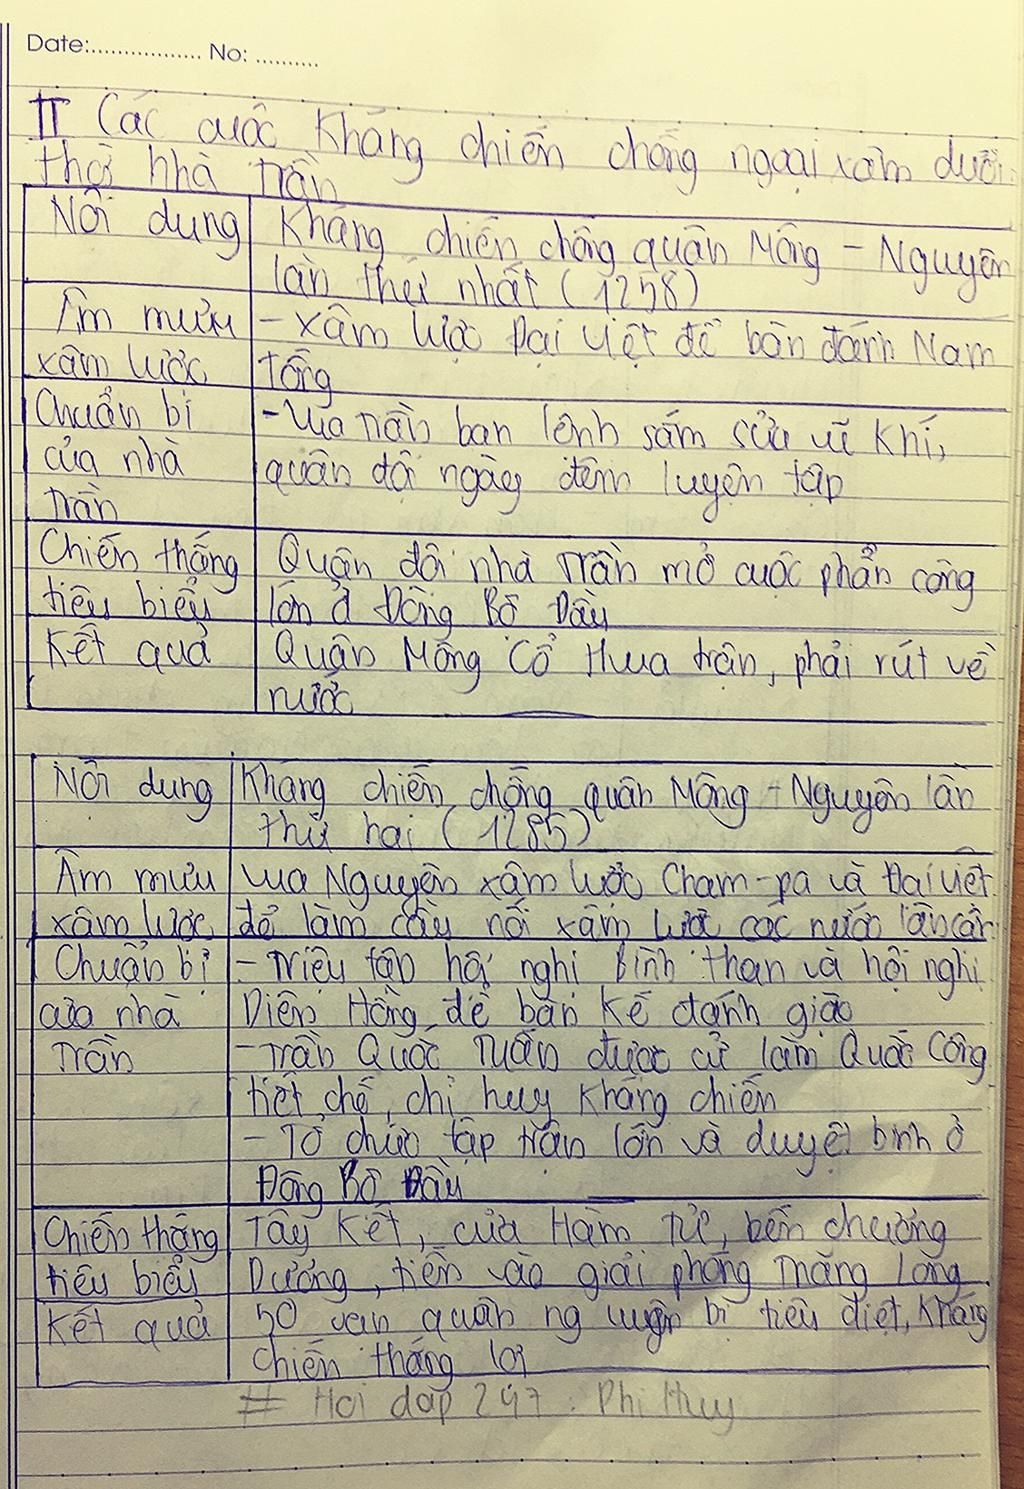 Date:................. No: ..........
II Các cuộc kháng chiến chống ngoại xâm dưới
thời nhà Trần
Nội dung Kháng chiến chống quân Mông - Nguyên
lần thứ nhất (1258)
Âm mưu - Xâm lược Đại Việt để bàn đánh Nam
xâm lược Tống
Chuẩn bị - Vua Trần ban lệnh sắm sửa vũ khí,
của nhà quân đội ngày đêm luyện tập
Trần
Chiến thắng Quân đội nhà Trần mở cuộc phản công
tiêu biểu lớn ở Đông Bộ Đầu
Kết quả Quân Mông Cổ thua trận, phải rút về
nước
Nội dung Kháng chiến chống quân Mông - Nguyên lần
thứ hai (1285)
Âm mưu Vua Nguyên xâm lược Cham-pa và Đại Việt
xâm lược để làm cầu nối xâm lược các nước lân cận
Chuẩn bị - Triệu tập hội nghị Bình Than và hội nghị
của nhà Diên Hồng để bàn kế đánh giặc
Trần - Trần Quốc Tuấn được cử làm Quốc Công
tiết chế, chỉ huy kháng chiến
- Tổ chức tập trận lớn và duyệt binh ở
Đông Bộ Đầu
Chiến thắng Tây Kết, cửa Hàm Tử, bến chương
tiêu biểu Dương, tiến vào giải phóng Thăng Long
Kết quả 50 vạn quân nguyên bị tiêu diệt, kháng
chiến thắng lợi
# Hoi dap 247 : Phi Huy